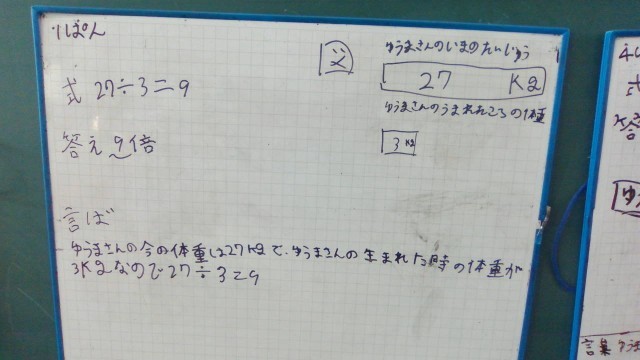 1ぱん
図
ゆうまさんのいまのたいじゅう
27 Kg
式 27÷3=9
ゆうまさんのうまれたころの体重
3 Kg
答え 9倍
言ば
ゆうまさんの今の体重は27Kgで、ゆうまさんの生まれた時の体重が
3Kgなので27÷3=9
式
答
ゆう
言葉 ゆうま